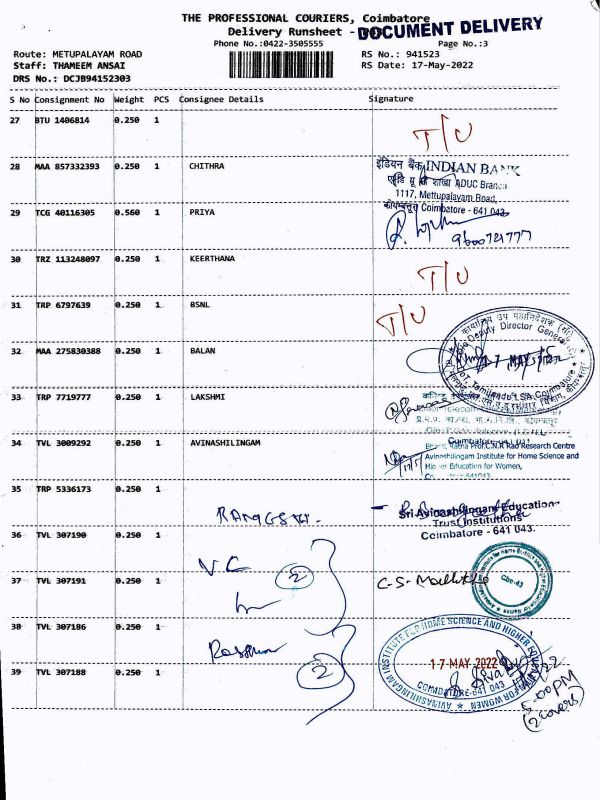 THE PROFESSIONAL COURIERS, Coimbatore
Delivery Runsheet -
DOCUMENT DELIVERY
Phone No.:0422-3505555
Page No.:3
Route: METUPALAYAM ROAD
RS No.: 941523
Staff: THAMEEM ANSAI
RS Date: 17-May-2022
DRS No.: DCJB94152303
S No Consignment No Weight PCS Consignee Details Signature
27 BTU 1406814 0.250 1
T/U
28 MAA 857332393 0.250 1 CHITHRA
इंडियन बैंक INDIAN BANK
शाखा ADUC Branch
1117, Mettupalayam Road,
Coimbatore - 641 043.
29 TCG 40116305 0.560 1 PRIYA
9600721777
30 TRZ 113248097 0.250 1 KEERTHANA
T/U
31 TRP 6797639 0.250 1 BSNL
T/U
32 MAA 275830388 0.250 1 BALAN
Deputy Director General
17 MAY
33 TRP 7719777 0.250 1 LAKSHMI
34 TVL 3009292 0.250 1 AVINASHILINGAM
Bharat Ratna Prof.C.N.R Rao Research Centre
Avinashilingam Institute for Home Science and
Higher Education for Women,
35 TRP 5336173 0.250 1
Sri Avinashilingam Education
Trust Institutions
Coimbatore - 641 043.
36 TVL 307190 0.250 1
V.C
2
37 TVL 307191 0.250 1
38 TVL 307186 0.250 1
AVINASHILINGAM INSTITUTE FOR HOME SCIENCE AND HIGHER EDUCATION FOR WOMEN
17 MAY 2022
COIMBATORE-641 043
2
39 TVL 307188 0.250 1
5.00PM
(2 covers)